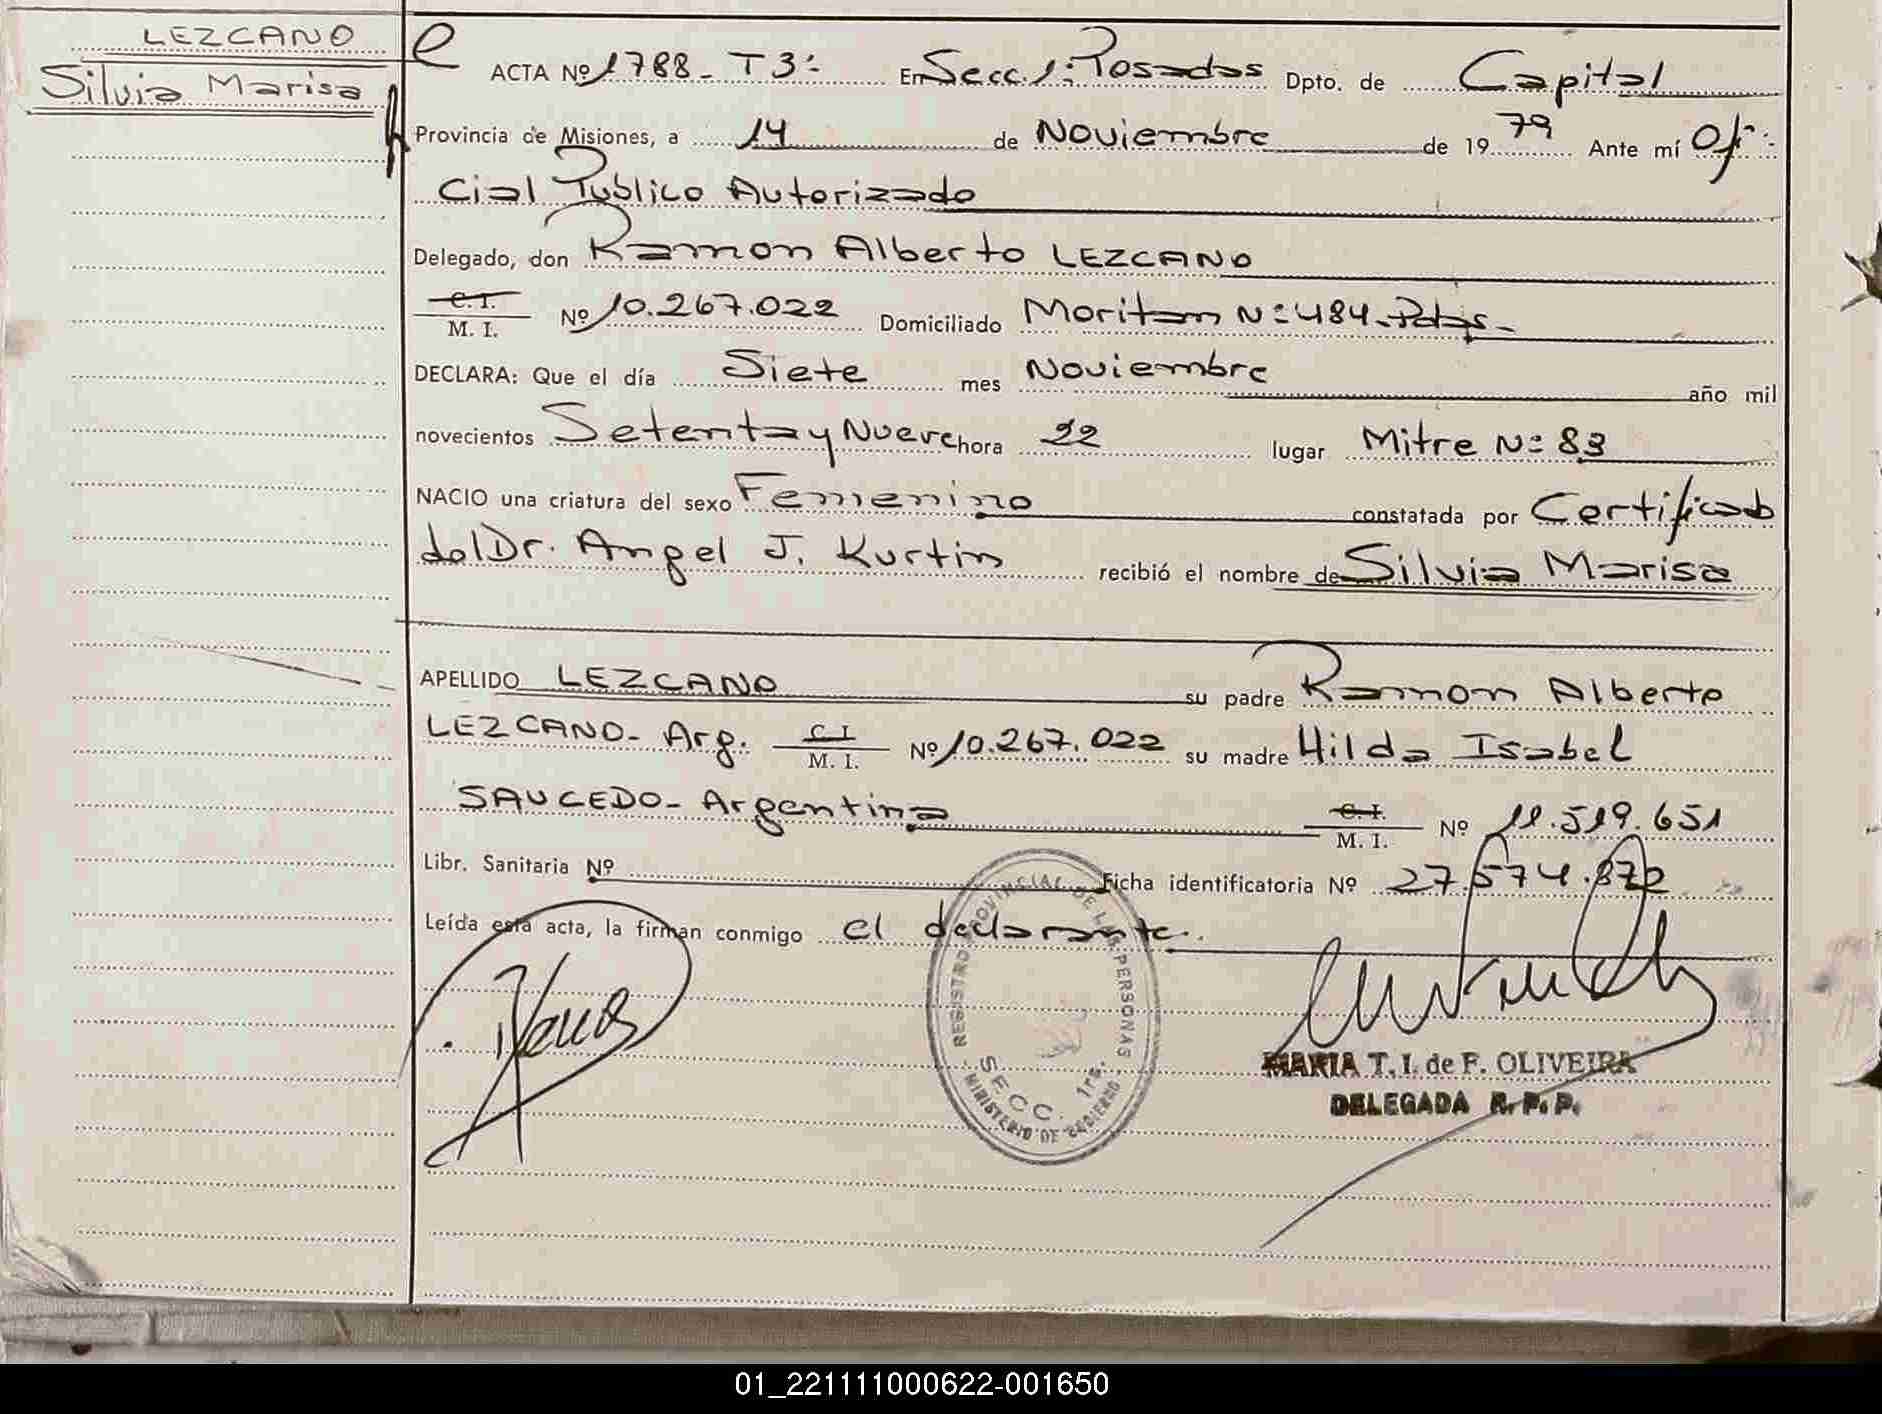 LEZCANO
Silvia Marisa
ACTA Nº 1788 - T3: En Secc. 1: Posadas Dpto. de Capital
Provincia de Misiones, a 14 de Noviembre de 1979 Ante mí Ofi-
cial Publico Autorizado
Delegado, don Ramon Alberto LEZCANO
C. I.
M. I. Nº 10.267.022 Domiciliado Moritan Nº 484 - Pdas -
DECLARA: Que el día Siete mes Noviembre año mil
novecientos Setenta y Nueve hora 22 lugar Mitre Nº 83
NACIO una criatura del sexo Femenino constatada por Certificado
del Dr. Angel J. Kurtin recibió el nombre de Silvia Marisa
APELLIDO LEZCANO su padre Ramon Alberto
LEZCANO - Arg. C. I. M. I. Nº 10.267.022 su madre Hilda Isabel
SAUCEDO - Argentina C. I. M. I. Nº 11.519.651
Libr. Sanitaria Nº Ficha identificatoria Nº 27.574.872
Leída esta acta, la firman conmigo el declarante.
REGISTRO PROVINCIAL DE LAS PERSONAS
SECC. 1ra.
MINISTERIO DE GOBIERNO
MARIA T. I. de F. OLIVEIRA
DELEGADA R. P. P.
01_221111000622-001650